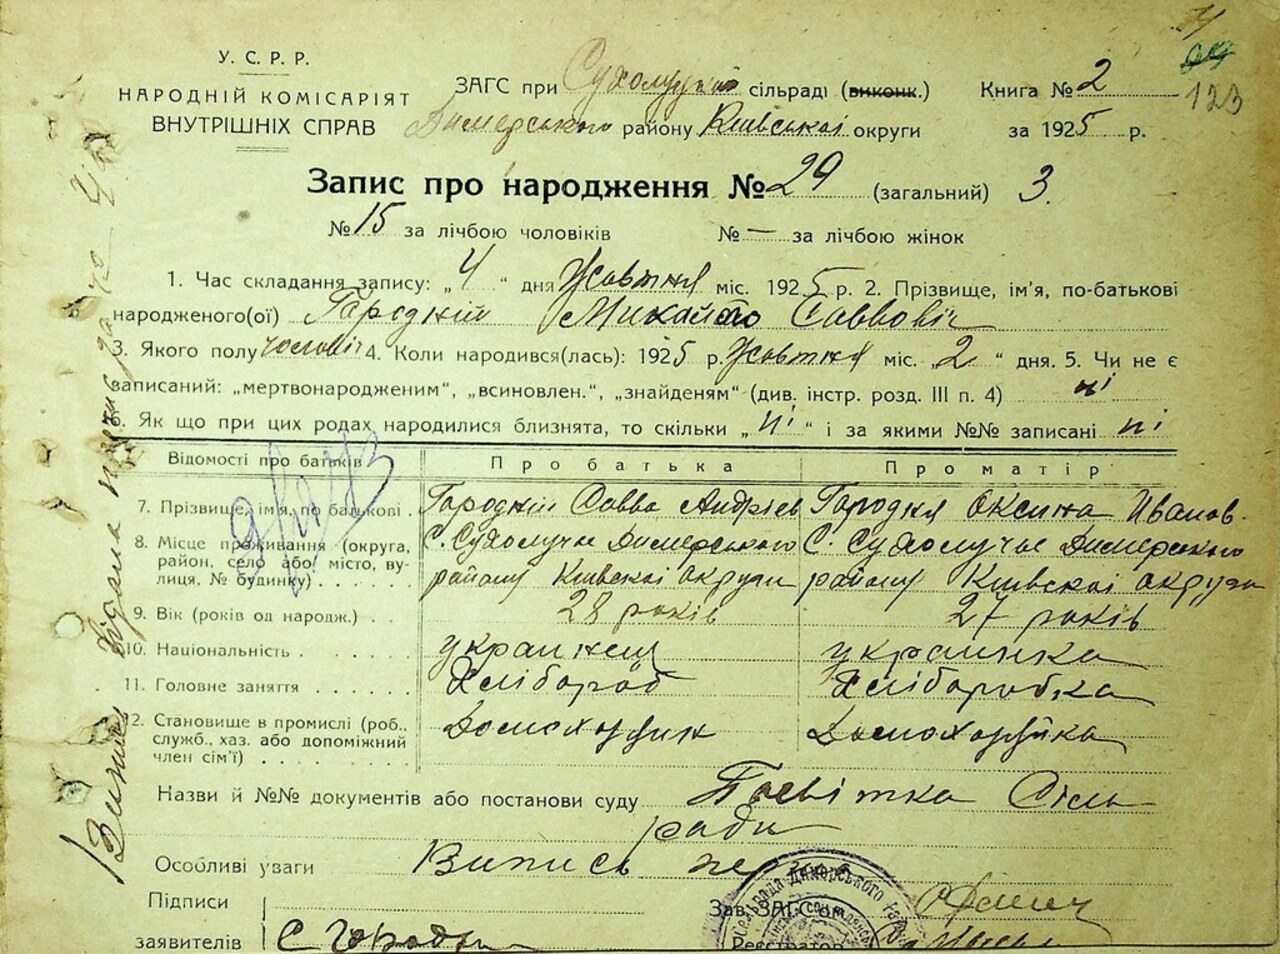 У. С. Р. Р.
НАРОДНІЙ КОМІСАРІЯТ
ВНУТРІШНІХ СПРАВ
ЗАГС при Сухолуцькій сільраді (виконк.)
Димерського району Київської округи
Книга № 2
за 1925 р.
123
Запис про народження № 29 (загальний) 3.
№ 15 за лічбою чоловіків № — за лічбою жінок
1. Час складання запису: „4“ дня Жовтня міс. 1925 р. 2. Прізвище, ім'я, по-батькові
народженого(ої) Гародній Михайло Саввовіч
3. Якого полу чоловіч 4. Коли народився(лась): 1925 р. Жовтня міс. „2“ дня. 5. Чи не є
записаний: „мертвонародженим“, „всиновлен.“, „знайденям“ (див. інстр. розд. III п. 4) ні
6. Як що при цих родах народилися близнята, то скільки „ні“ і за якими №№ записані ні
Відомості про батьків Про батька Про матір
7. Прізвище, ім'я, по батькові . Гародній Савва Андрієв Гародня Оксина Иванов.
8. Місце проживання (округа, район, село або місто, вулиця, № будинку) . . .
С. Сухолучье Димерського району Київскої округи
С. Сухолучье Димерского району Київскої округи
9. Вік (років од народж.) . . 28 років 27 років
10. Національність . . . . . українец українка
11. Головне заняття . . . . . . Хлібороб Хліборобка
12. Становище в промислі (роб., служб., хаз. або допоміжний член сім'ї) . . . . . . .
Домохазяин Домохазяйка
Назви й №№ документів або постанови суду Посвітка Сіль
ради
Особливі уваги Випись
Підписи
заявителів С Городн
Зав. ЗАГС'ом
Реєстратор
Випись Видана